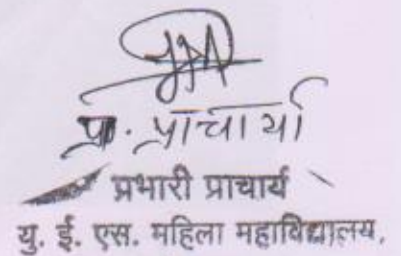 प्र. प्राचार्या
प्रभारी प्राचार्य
यु. ई. एस. महिला महाविद्यालय,